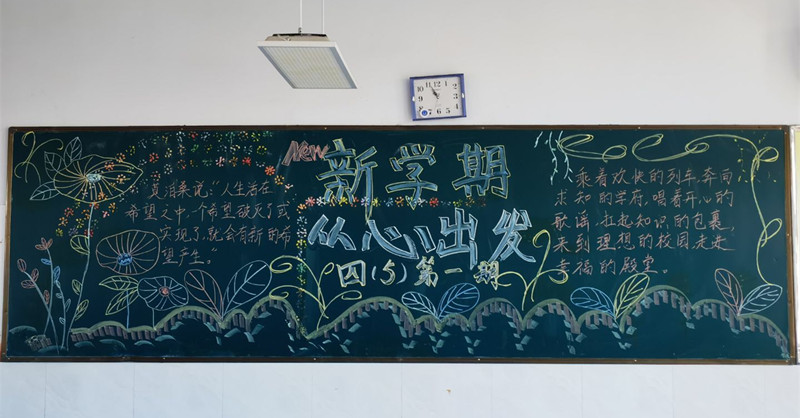 New
新学期
从心出发
四(5)第一期
莫泊桑说:"人生活在
希望之中,一个希望破灭了或
实现了,就会有新的希
望产生。"
乘着欢快的列车奔向
求知的学府,唱着开心的
歌谣,扛起知识的包裹,
来到理想的校园走进
幸福的殿堂。